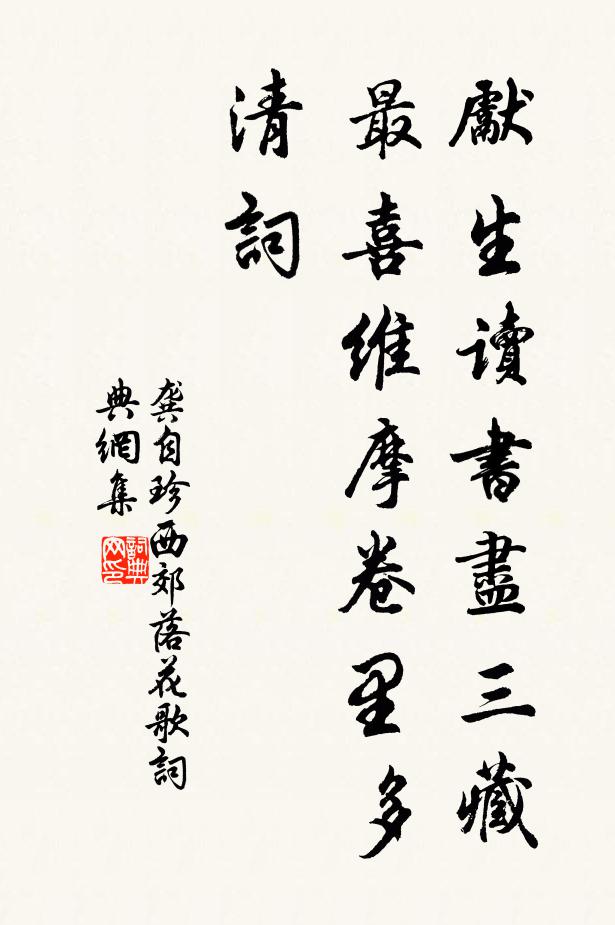 獻生讀書盡三藏
最喜維摩卷里多
清詞
龔自珍西郊落花歌詞
典網集
詞典
网印